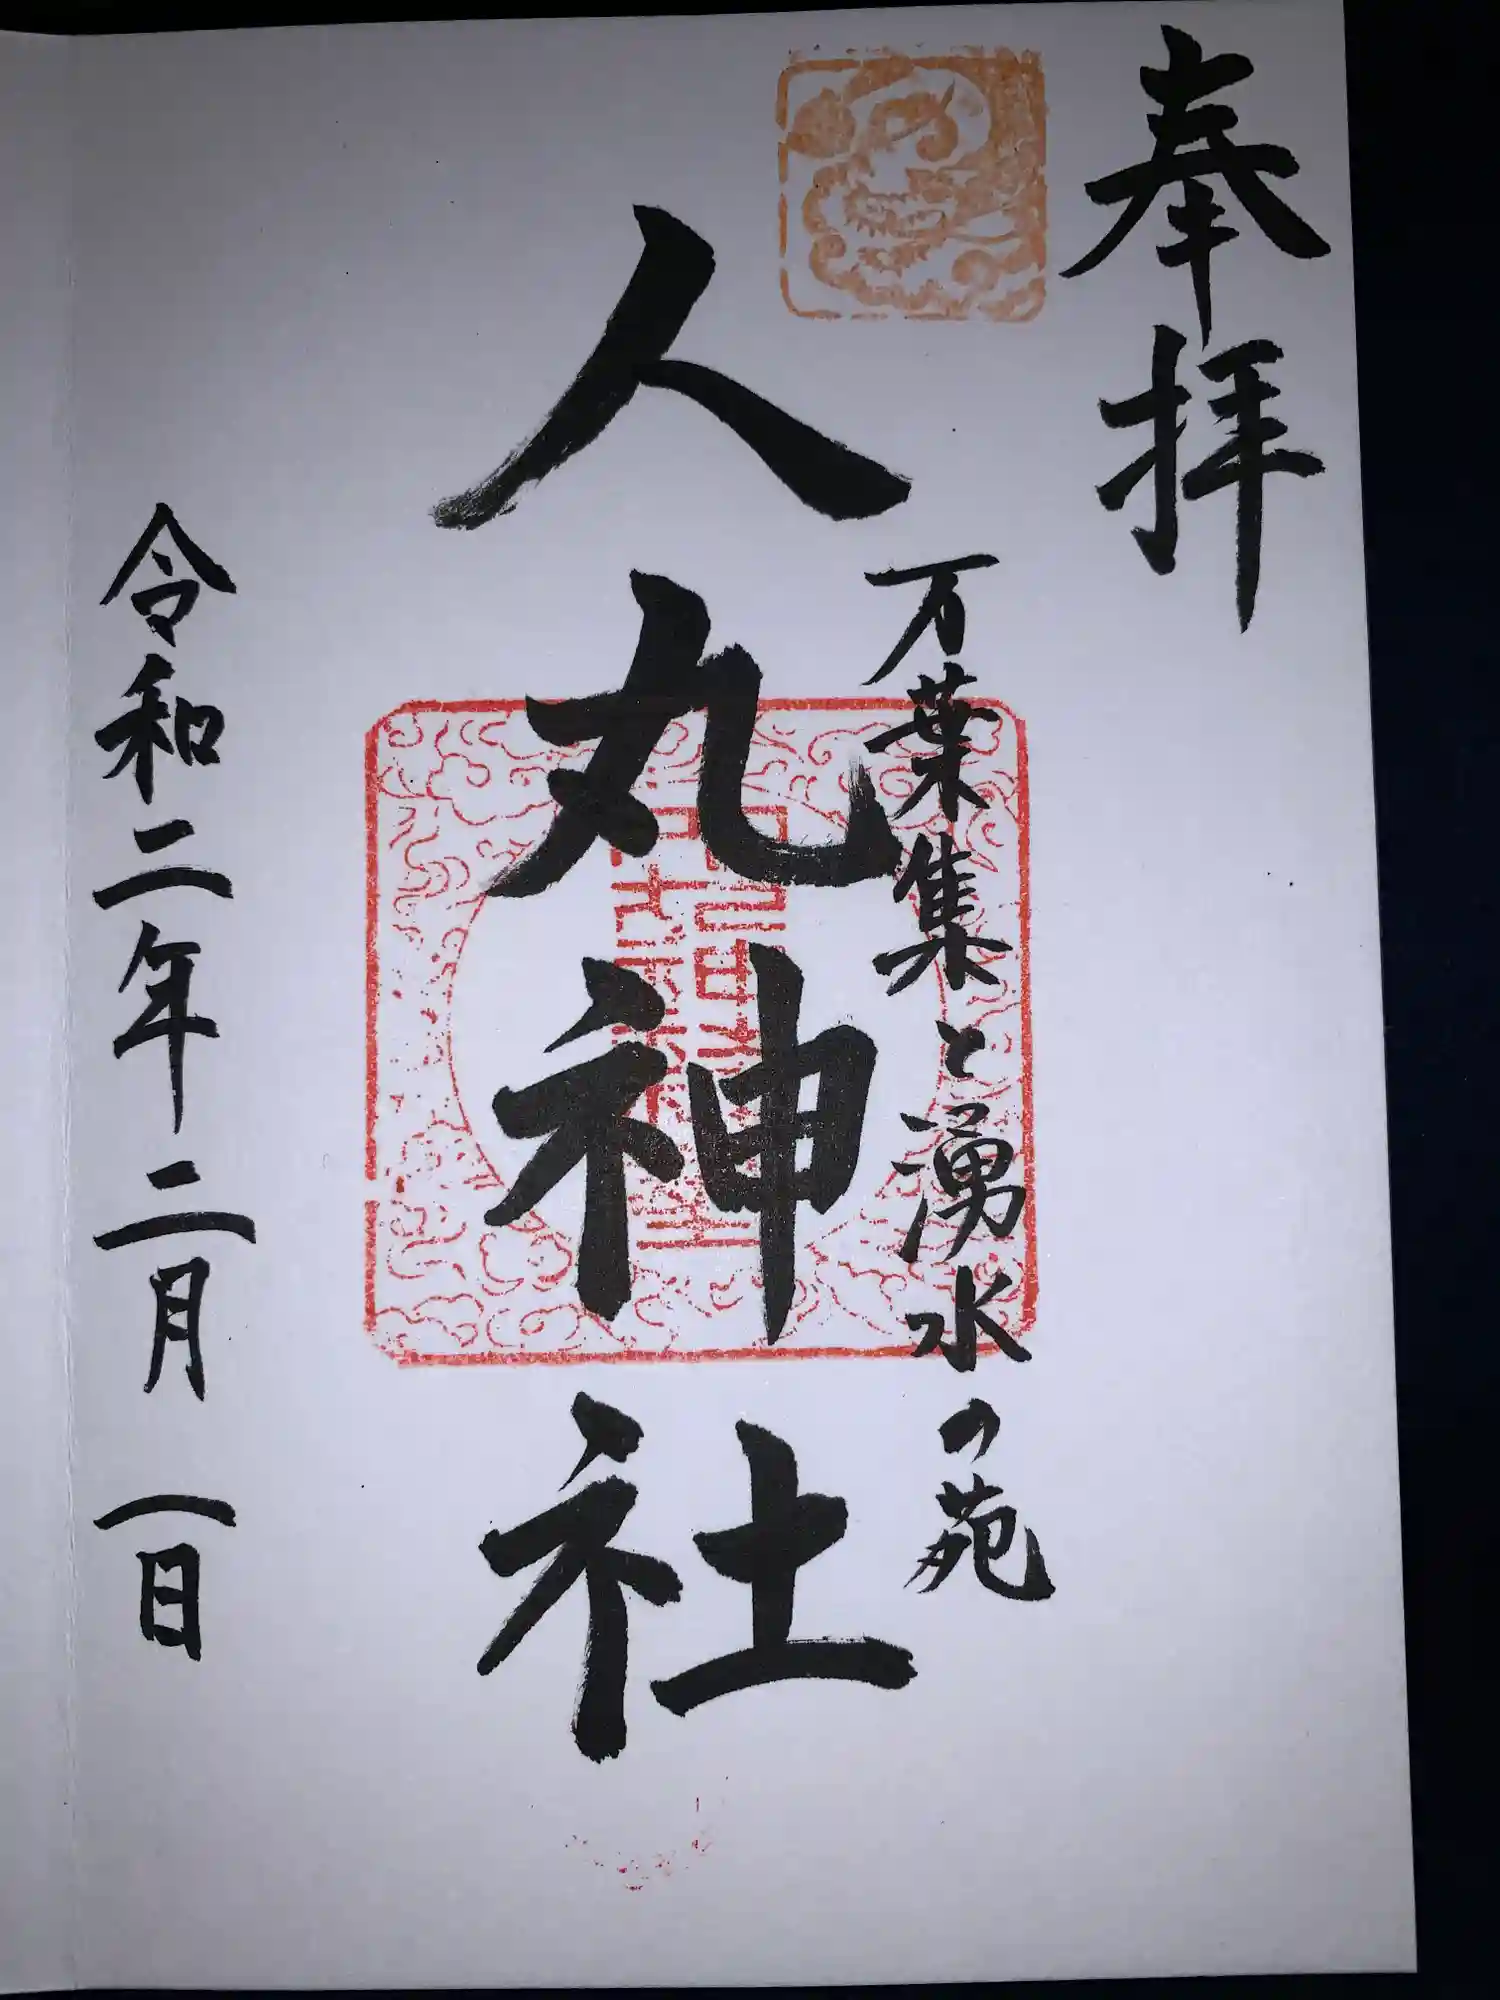 奉拝
万葉集と湧水の苑
人丸神社
令和二年二月一日